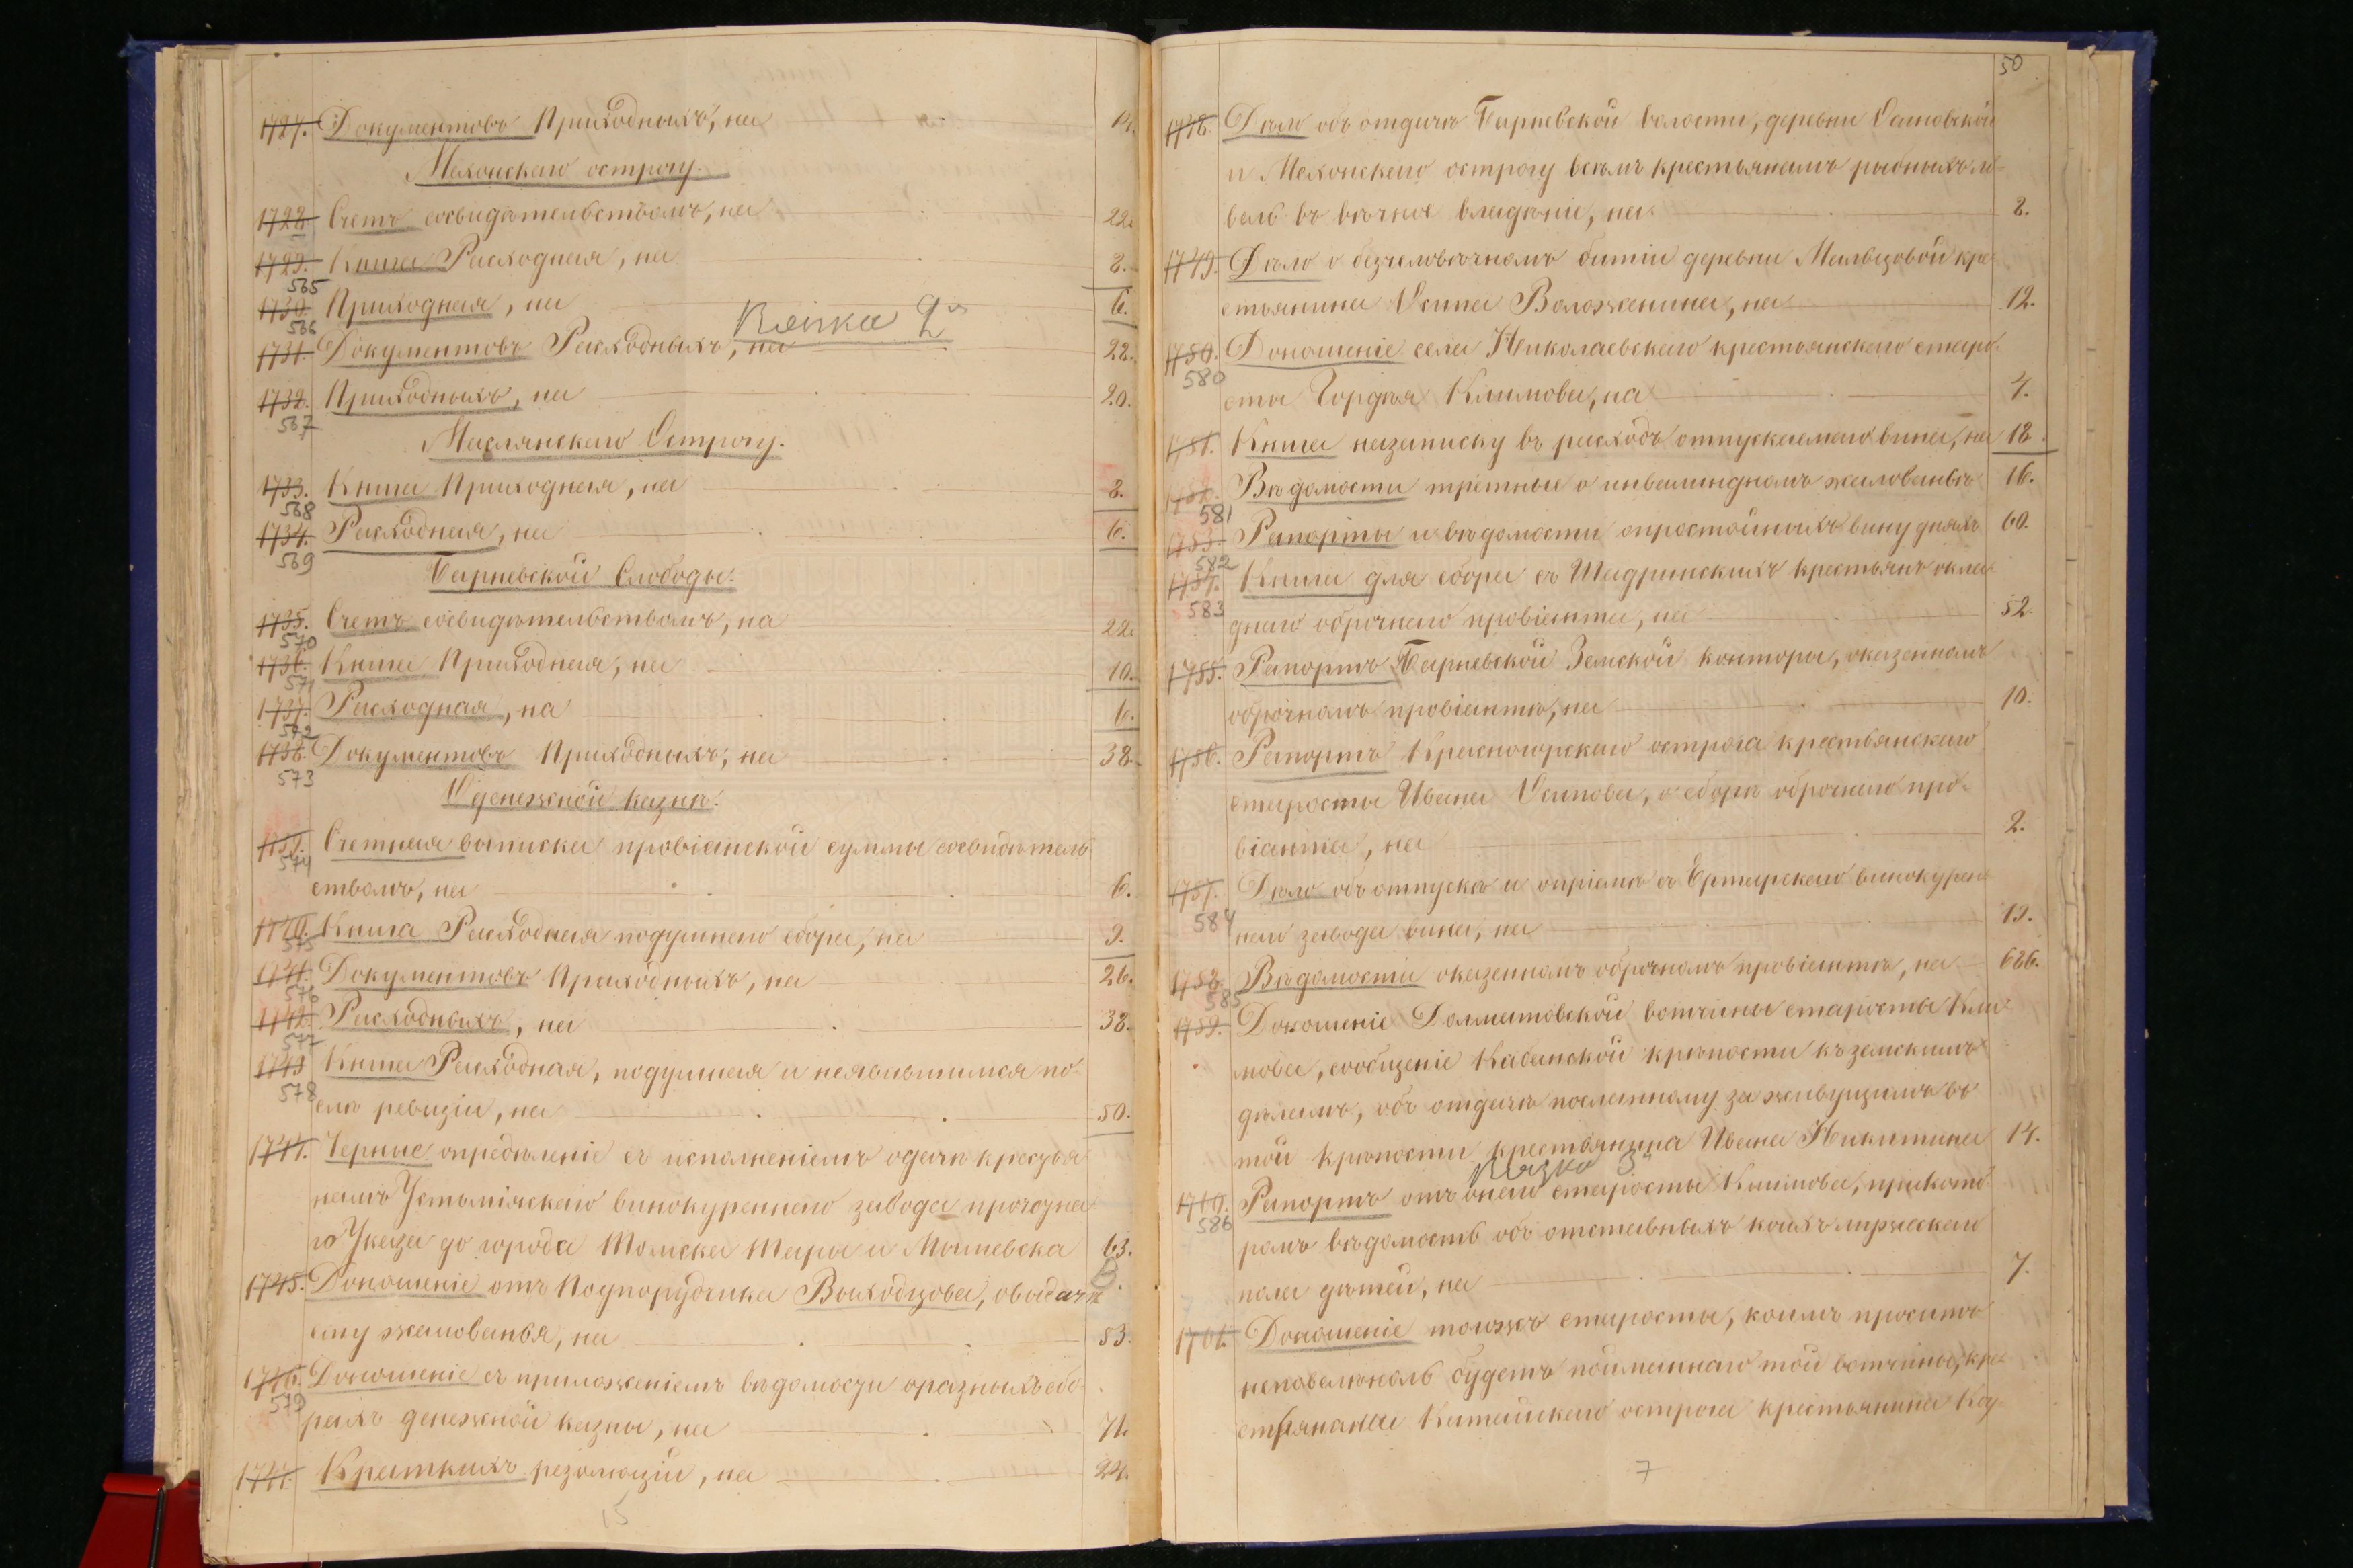 1727. Документовъ Приходныхъ, на 14.
Мехонскаго острогу.
1728. Счетъ сосвидѣтельствомъ, на 22.
1729. Книга Расходная, на 8.
565
1730. Приходная, на 6.
566 Вязка 2я
1731. Документовъ Расходныхъ, на 28.
1732. Приходныхъ, на 20.
567
Маслянскаго Острогу.
1733. Книга Приходная, на 8.
568
1734. Расходная, на 6.
569
Барневской Слободы.
1735. Счетъ сосвидѣтельствомъ, на 22.
570
1736. Книга Приходная, на 10.
571
1737. Расходная, на 6.
572
1738. Документовъ Приходныхъ, на 38.
573
О денежной казнѣ.
1739. Счетная выписка провіанской суммы сосвидѣтель
574
ствомъ, на 6.
1740. Книга Расходная подушнаго сбора, на 9.
575
1741. Документовъ Приходныхъ, на 26.
576
1742. Расходныхъ, на 38.
577
1743 Книга Расходная, подушная и неявльшимся по
578
слѣ ревизіи, на 50.
1744. Черные опредѣленіе съ исполненіемъ одачѣ крестья
намъ винокуреннаго завода прогодна
го Указа до города Томска Тары и 63.
1745. Доношеніе отъ Подпорудчика Выходцова, овыдачѣ
ему жалованья, на 53.
1746. Доношеніе съ приложеніемъ вѣдомости оразныхъ сбо
579
рахъ денежной казны, на 71.
1747. Краткихъ резолюціи, на 24.
15
50
1748. Дѣло объ отдачѣ Барневской волости, деревни Осиновской
и Мехонскаго острогу всѣмъ крестьянамъ рыбныхъ ло
валь въ вѣчное владѣніе, на 8.
1749. Дѣло о безчеловѣчномъ битіи деревни Мальцовой кре
стьянина Осипа Воложенина, на 12.
1750. Доношеніе села Николаевскаго крестьянскаго старо
580
сты Гордѣя Климова, на 4.
1751. Книга назаписку въ расходъ отпускаемаго вина, на 18.
1752. Вѣдомости третные о инвалидномъ жалованьѣ 16.
581
1753. Рапорты и вѣдомости опростойныхъ вину дняхъ 60.
582
1754. Книга для сбора съ Шадринскихъ крестьянъ окла
583
днаго оброчнаго провіанта, на 52.
1755. Рапортъ Барневской Земской конторы, оказенномъ
оброчномъ провіантѣ, на 10.
1756. Рапортъ Красногорскаго острога крестьянскаго
старосты Ивана Осипова, о сборѣ оброчнаго про-
віанта, на 2.
1757. Дѣло объ отпускѣ и опріемѣ съ Ертарскаго винокурен
584
наго завода вина, на 19.
1758. Вѣдомости оказенномъ оброчномъ провіантѣ, на 686.
585
1759. Доношеніе Далматовской вотчины старосты Кли
мова, сообщеніе Кабанской крѣпости къ земскимъ
дѣламъ, объ отдачѣ посланному за живущимъ въ
той крѣпости крестьянина Ивана Никитина 14.
Вязка 3я
1760. Рапортъ отъ онаго старосты Климова, прикото
586
ромъ вѣдомость объ отставныхъ коихъ мужескаго
пола дѣтей, на 7.
1761. Доношеніе тогожъ старосты, коимъ проситъ
неповелѣноль будетъ пойманнаго той вотчины, кре
стьянами Катайскаго острога крестьянина Ко
7